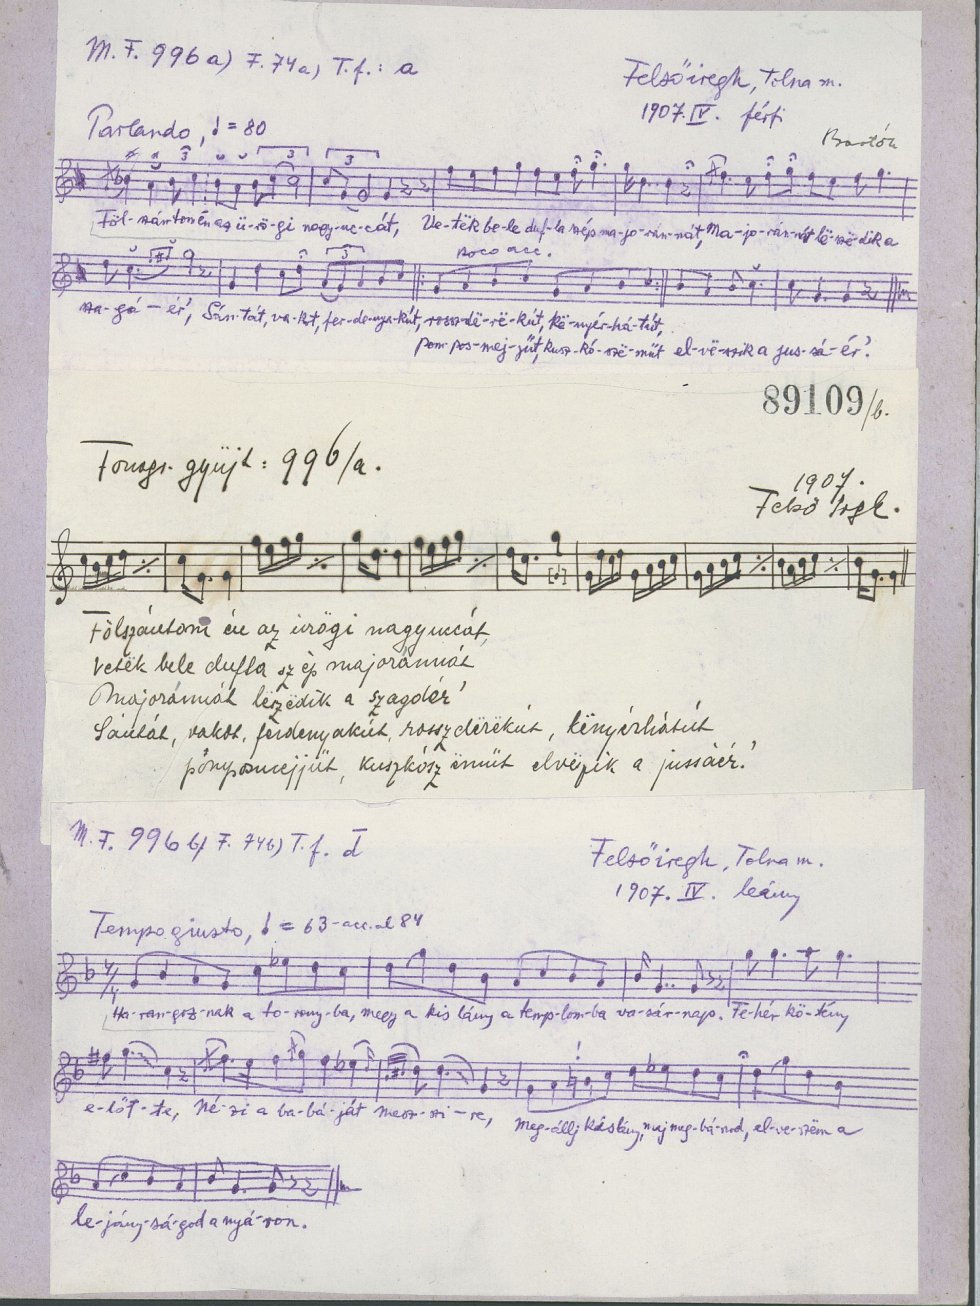 M. F. 996 a) F. 74 a) T. f.: a
Felsőiregh, Tolna m.
1907. IV. férfi
Bartók
Parlando, ♩ = 80
Föl-szántom én az ü-rö-gi nagy-uc-cát, Ve-tëk be-le duf-la szép ma-jo-rán-nát, Ma-jo-rán-nát lë-szë-dik a
poco acc.
sza-gá-ér', Sán-tát, va-kot, fer-de-nya-kút, rossz-dë-rë-kút, kë-nyér-há-tút,
pom-pos-mej-jűt, kusz-kó-szë-műt el-vë-szik a jus-sá-ér'.
89109/b.
Fonogr. gyűjt: 996/a.
1907.
Felső Iregh.
Fölszántom én az ürögi nagyuccát,
Vetëk bele dufla szép majoránnát
Majoránnát lëszëdik a szagáér'
Sántát, vakot, ferdenyakút, rosszdërëkút, kënyérhátút
pómposmejjűt, kuszkószëműt elvëszik a jussáér'.
M. F. 996 b) F. 74 b) T. f. d
Felsőiregh, Tolna m.
1907. IV. leány
Tempo giusto, ♩ = 63 acc. al 84
Ha-ran-goz-nak a to-rony-ba, megy a kis lány a temp-lom-ba va-sár-nap. Fe-hér kö-tény
e-lőt-te, Né-zi a ba-bá-ját mesz-szi-re, Meg-állj kis lány, maj meg-bá-nod, el-ve-szëm a
le-jány-sá-god a nyá-ron.